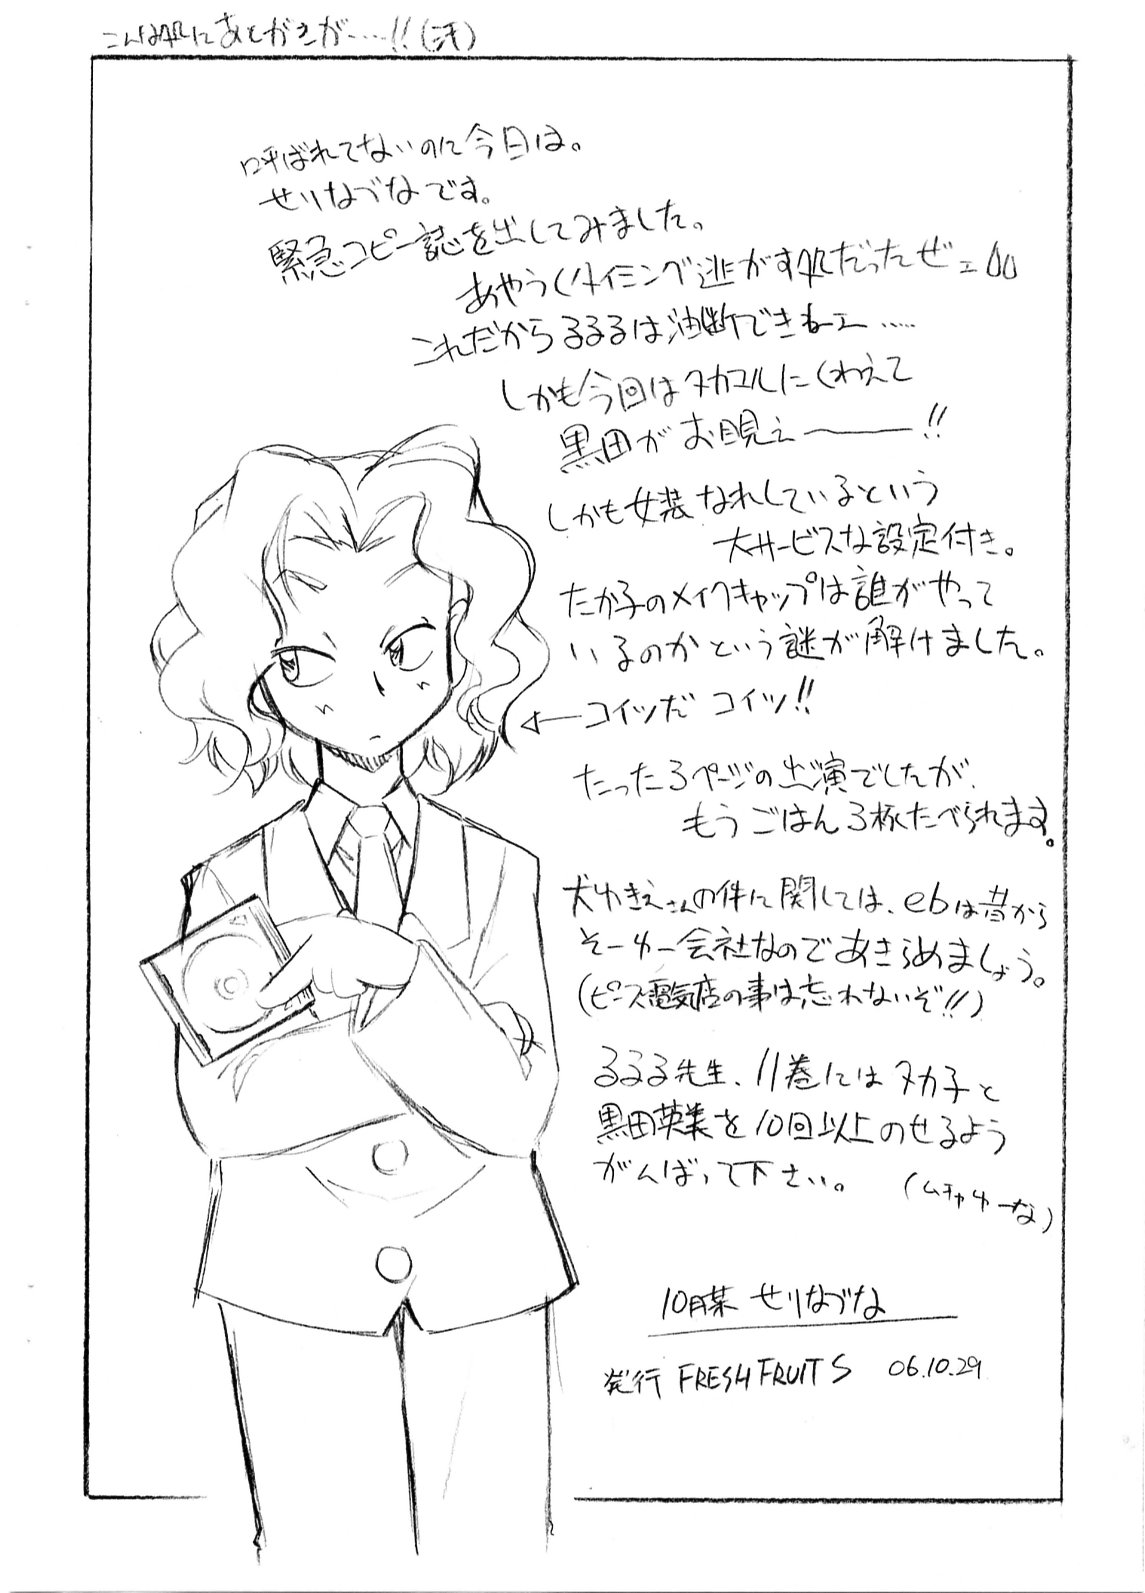 こんな処にあとがきが‥‥!!(汗)
呼ばれてないのに今日は。
せりなづなです。
緊急コピー誌を出してみました。
あやうくタイミング逃がす処だったぜ
これだからるるるは油断できねー‥‥
しかも今回はタカコルにくわえて
黒田がお目見え――!!
しかも女装なれしているという
大サービスな設定付き。
たか子のメイクキャップは誰がやって
いるのかという謎が解けました。
←コイツだ コイツ!!
たった3ページの出演でしたが、
もうごはん3杯たべられます。
犬ゆきえさんの件に関しては、ebは昔から
そーゆー会社なのであきらめましょう。
(ピース電気店の事は忘れないぞ!!)
るるる先生、11巻にはタカ子と
黒田英美を10回以上のせるよう
がんばって下さい。 (ムチャゆーな)
せりなづな
発行 FRESH FRUITS 06.10.29